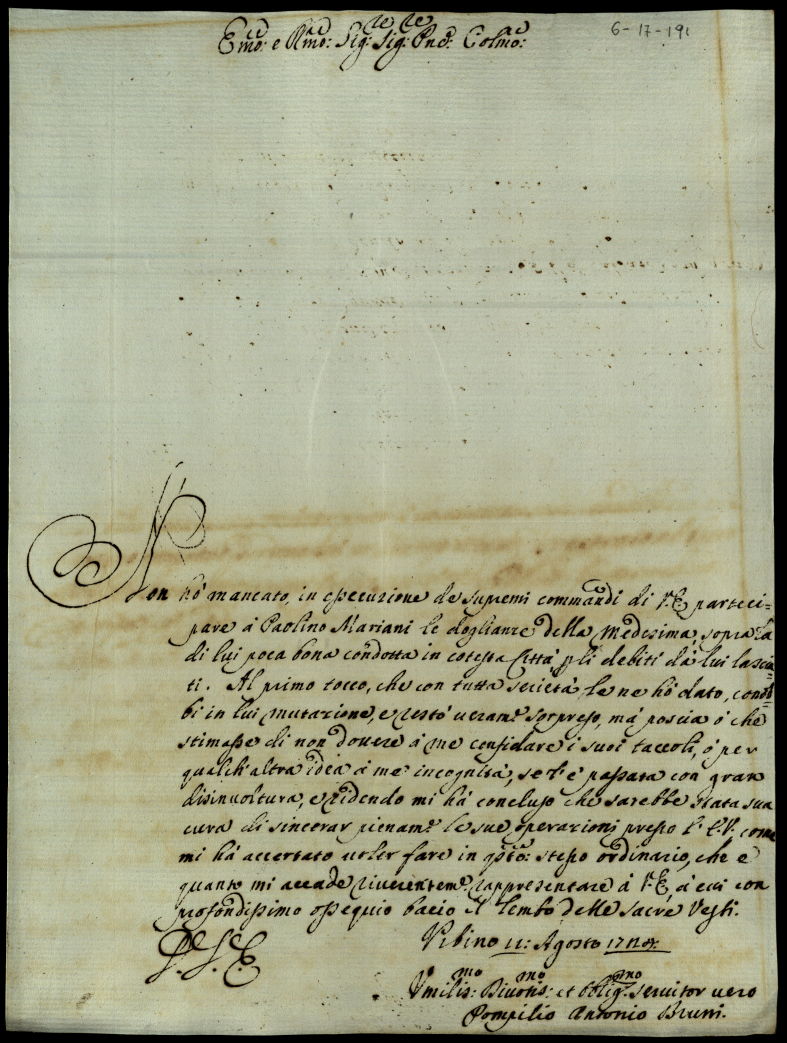 6-17-191
Em̃o: e Rm̃o: Sig: Sig: Pnẽ: Colmo:
Non hò mancato, in esecuzione de supremi commandi di V.E. parteci=
pare à Paolino Mariani le doglianze della medesima, sopra la
di lui poca bona condotta in cotesta Città, p li debiti dà lui lascia=
ti. Al primo tocco, che con tutta serietà le ne hò dato, conob=
bi in lui mutazione, e restò veram.e sorpreso, mà poscia ò che
stimasse di non dovere à me confidare i suoi taccoli, ò per
qualch'altra idea à me incognita, se l'è passata con gran
disinvoltura, e ridendo mi hà concluso che sarebbe stata sua
cura di sincerar pienam.e le sue operazioni presso l'E.V. come
mi hà accertato voler fare in qsto: stesso ordinario, che è
quanto mi accade riverentem.e rappresentare à V.E. à cui con
profondissimo ossequio bacio il lembo delle sacre Vesti.
Di V. E.
Urbino 11: Agosto
Umilis:mo Divotis:mo et Oblig:mo servitor vero
Pompilio Antonio Bruni.